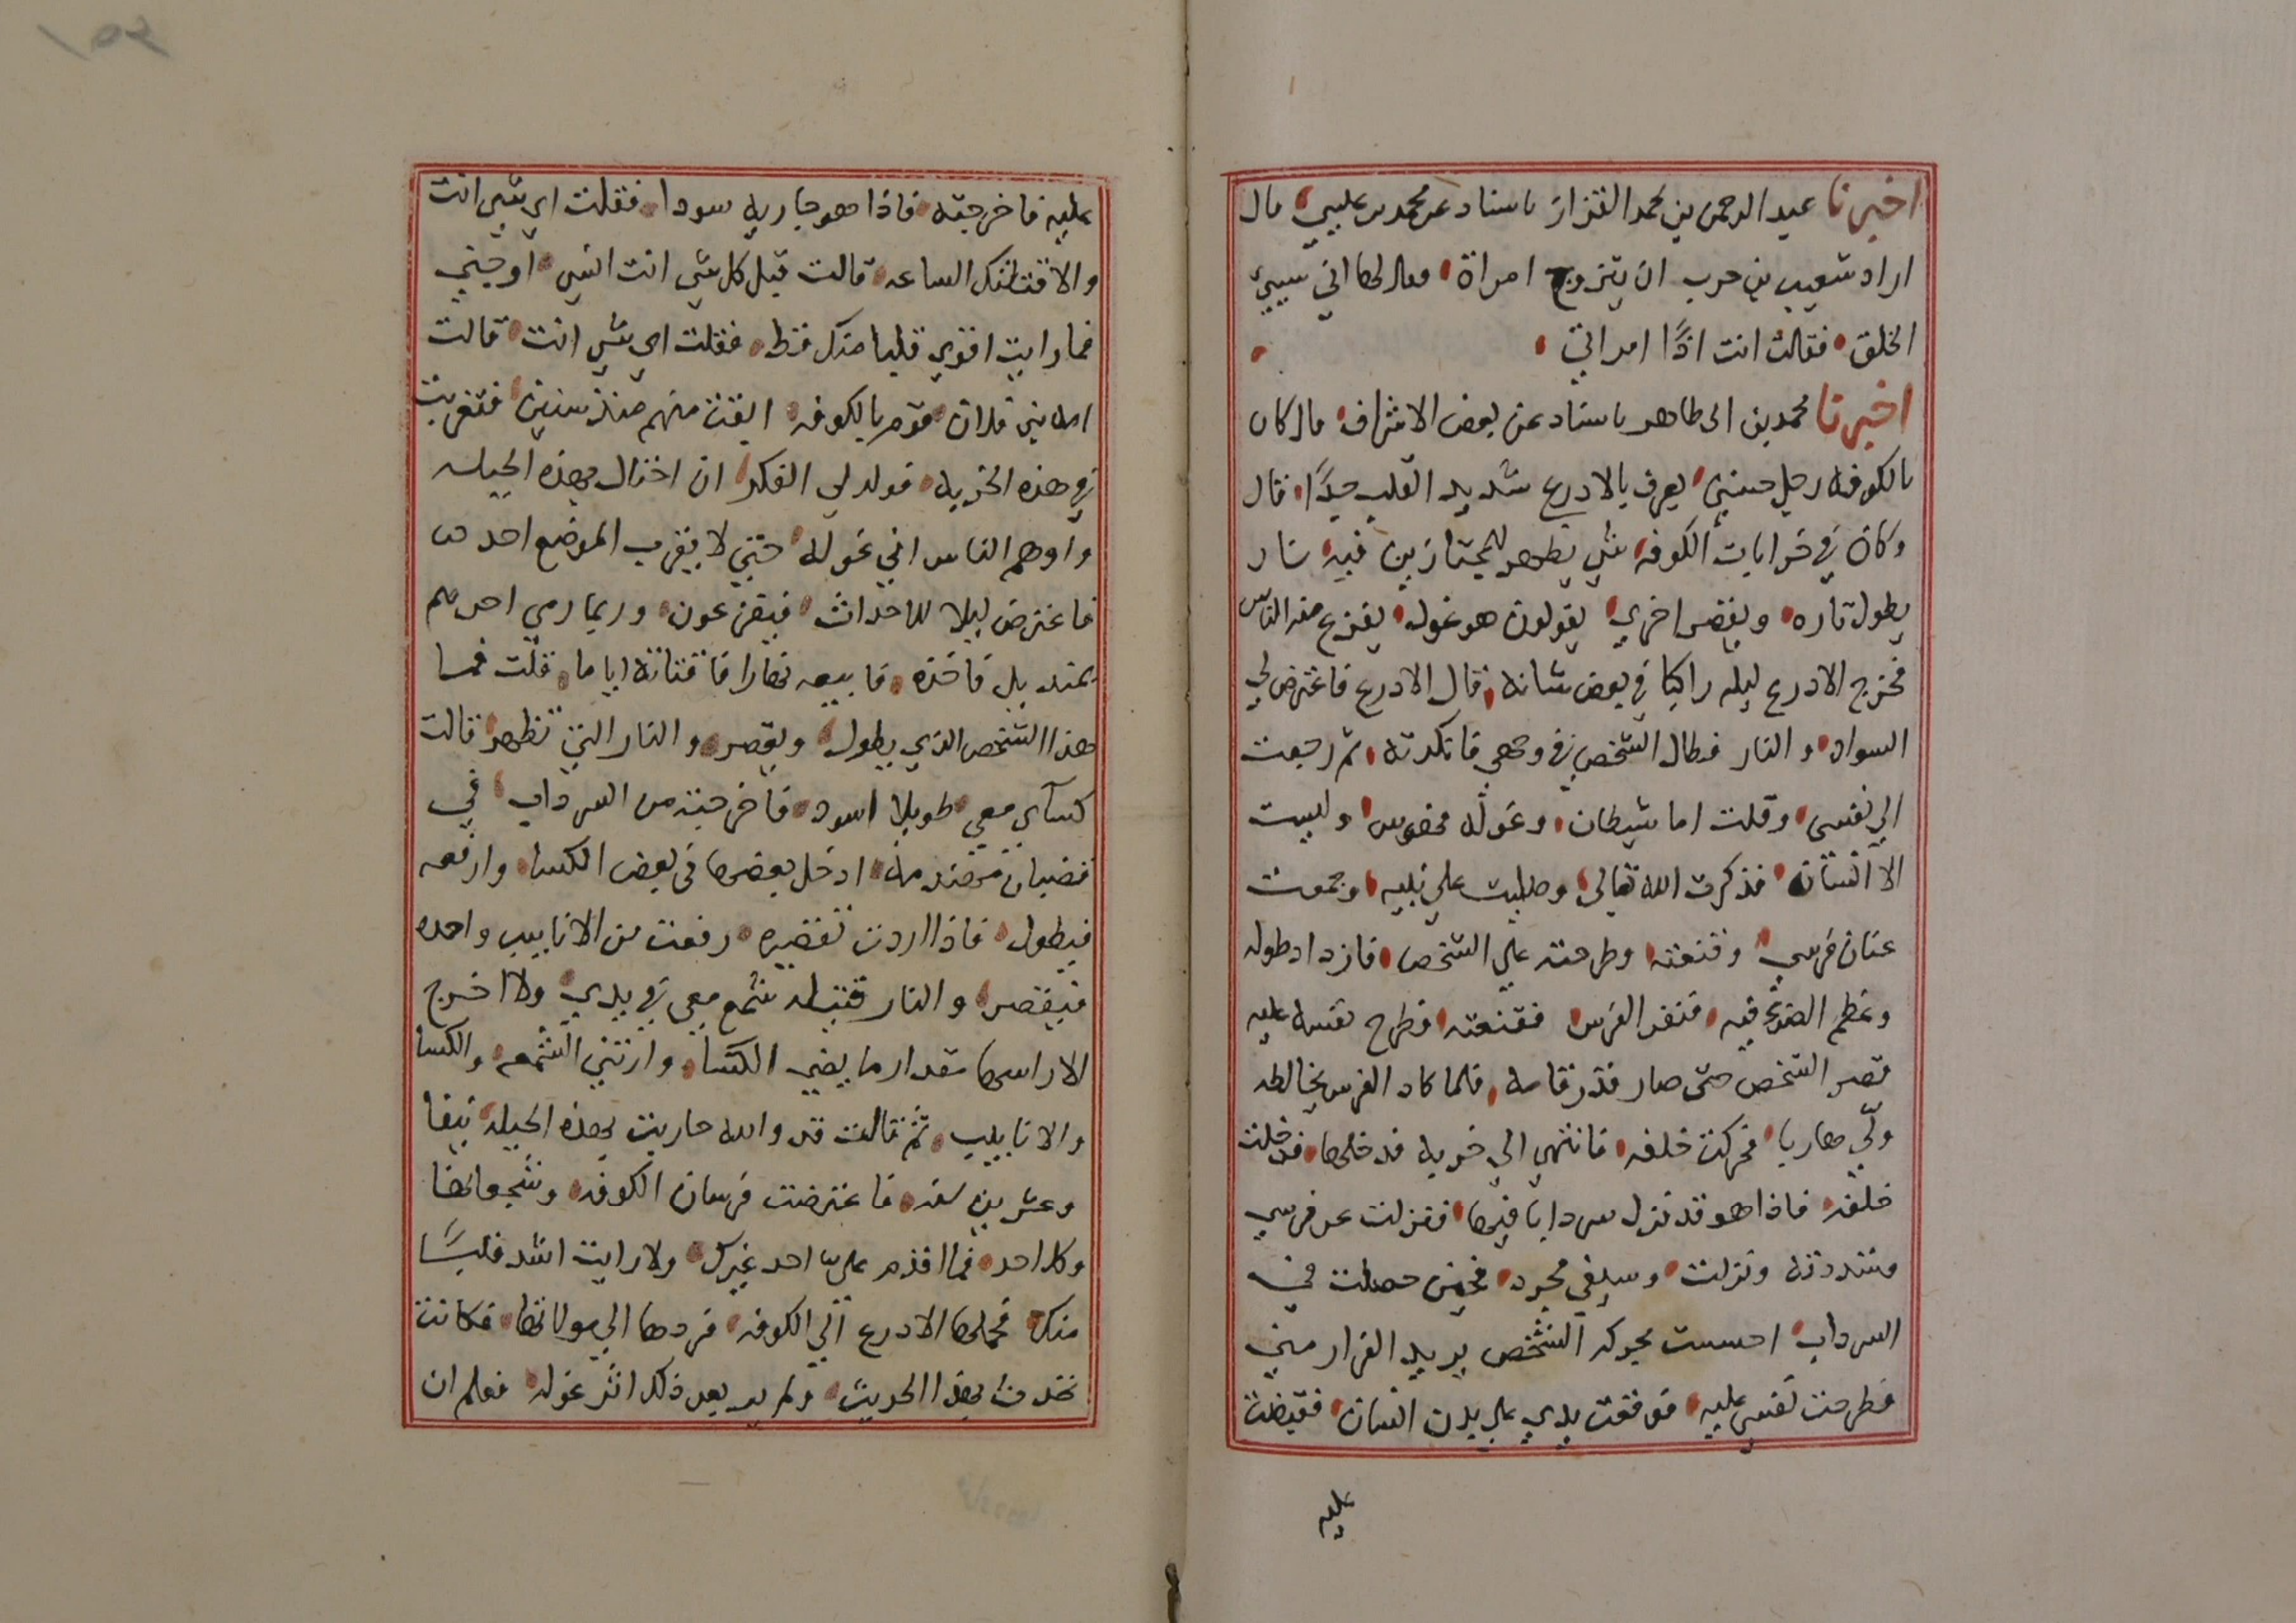 اخبرنا عبد الرحمن بن محمد القزاز باسناد عن محمد بن عيسي قال
اراد شعيب بن حرب ان يتزوج امراة وقال لها اني سيئ
الخلق فقالت انت اذًا امراتي
اخبرنا محمد بن ابي طاهر باسناد عن بعض الاشراف قال كان
بالكوفة رجل حسني يعرف بالادرع شديد القلب جدًا قال
وكان في خرابات الكوفه شي يظهر للمجتازين فيه نار
يطول تاره ويقصر اخري يقولون هو غوله يفزع منه الناس
فخرج الادرع ليله راكبا في بعض شانه قال الادرع فاعترض لي
السواد والنار فطال الشخص في وجهي فانكرته ثم رجعت
الي نفسي وقلت اما شيطان وغوله فهوس وليست
الا انسان فذكرت الله تعالي وصليت علي نبيه وجمعت
عنان فرسي وقنعته وطرحته علي الشخص فازداد طوله
وعظم الضوء فيه فنفر الفرس فقنعته فطرح نفسه عليه
فقصر الشخص حتى صار قدر قامه فلما كاد الفرس يخالطه
ولّي هاربا فحركت خلفه فانتهي الي خربه فدخلها فدخلت
خلفه فاذا هو قد نزل سردابا فيها فنزلت عن فرسي
وشددته ونزلت وسيفي مجرد فحين حصلت في
السرداب احسست بحركة الشخص يريد الفرار مني
فطرحت نفسي عليه فوقعت يدي علي بدن انسان فقبضت
عليه
عليه فاخرجته فاذا هو جاريه سودا فقلت اي شي انت
والا قتلتك الساعه قالت قبل كل شي انت انسي او جني
فما رايت اقوي قلبا منك قط فقلت اي شي انت قالت
امه بني فلان قوم بالكوفه ابقت منهم منذ سنين فتغربت
في هذه الخربه فولد لي الفكر ان احتال بهذه الحيله
واوهم الناس اني غوله حتى لا يقرب الموضع احد من
فاعترض ليلا للاحداث فيفزعون وربما رمي احدهم
بمنديل فاخذه فابيعه نهارا فاقتاته اياما قلت فما
هذا الشخص الذي يطول ويقصر والنار التي تظهر قالت
كساي معي طويلا اسود فاخرجته من السرداب في
قضبان مهندمه ادخل بعضها في بعض الكسا وارفعه
فيطول فاذا اردت تقصيره رفعت من الانابيب واحده
فيقصر والنار فتيله شمع معي في يدي ولا اخرج
الا راسها مقدار ما يضي الكسا وارتني الشمعه والكسا
والانابيب ثم قالت قد والله جازت بهذه الحيله نيفا
وعشرين سنه فاعترضت فرسان الكوفه وشجعانها
وكل احد فما اقدم علي احد غيرك ولا رايت اشد قلبًا
منك فحملها الادرع الي الكوفه فردها الي مواليها فكانت
تحدث بهذا الحديث ولم ير بعد ذلك اثر غوله فعلم ان